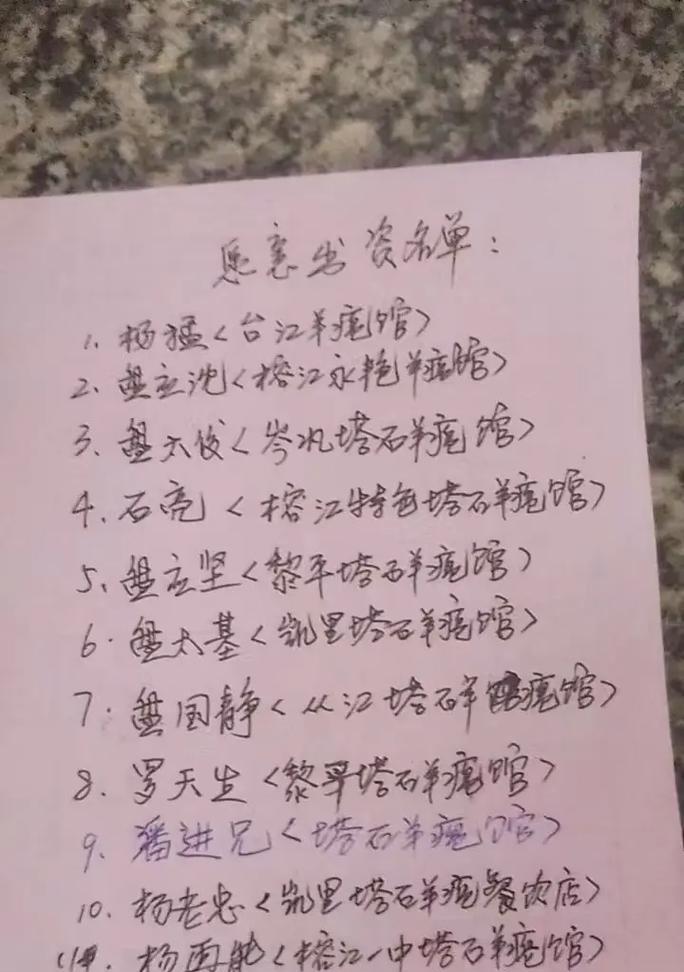 愿意出资名单：
1. 杨猛＜台江羊瘪馆＞
2. 盘应沈＜榕江永艳羊瘪馆＞
3. 盘大俊＜岑巩塔石羊瘪馆＞
4. 石亮＜榕江特色塔石羊瘪馆＞
5. 盘应坚＜黎平塔石羊瘪馆＞
6. 盘太基＜凯里塔石羊瘪馆＞
7. 盘国静＜从江塔石羊瘪馆＞
8. 罗天生＜黎平塔石羊瘪馆＞
9. 潘进兄＜塔石羊瘪馆＞
10. 杨老忠＜凯里塔石羊瘪餐饮店＞
杨再能＜榕江一中塔石羊瘪馆＞